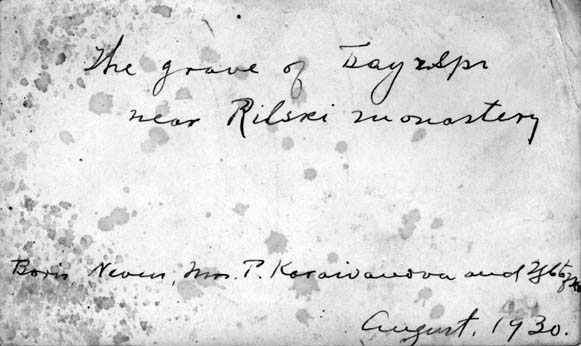 The grave of
near Rilski monastery
Boris, Neven, Mrs. P. Karaivanova and
August, 1930.